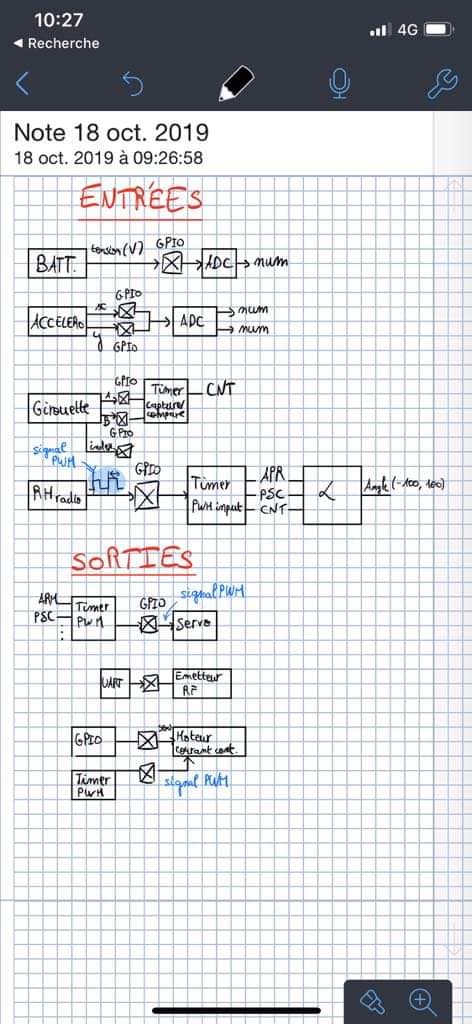 10:27
4G
◄ Recherche
Note 18 oct. 2019
18 oct. 2019 à 09:26:58
ENTRÉES
BATT. tension (V) GPIO ADC num
ACCELERO x GPIO ADC num
y GPIO num
Girouette A GPIO Timer capture/compare CNT
B GPIO
index
signal PWM
RH radio GPIO Timer PWM input ARR PSC CNT α Angle (-100, 100)
SORTIES
ARR PSC Timer PWM GPIO signal PWM Servo
UART Emetteur RF
GPIO Moteur courant cont.
Timer PWM signal PWM